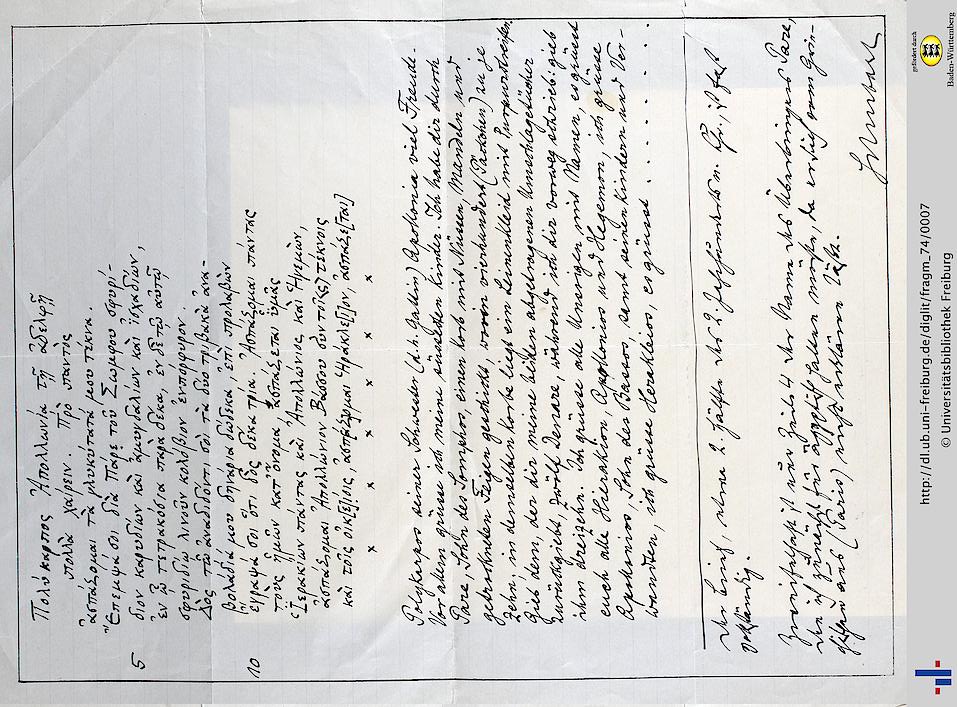 Πολύκαρπος Ἀπολλωνίᾳ τῇ ἀδελφῇ
πολλὰ χαίρειν. Πρὸ παντὸς
ἀσπάζομαι τὰ γλυκύτατά μου τέκνα.
Ἔπεμψά σοι διὰ Πάρε τοῦ Σώμφου σφυρί-
5 διον καρυδίων καὶ ἀμυγδάλων καὶ ἰσχάδων,
ἐν ᾧ τετρακόσια παρὰ δέκα, ἐν δὲ τῷ αὐτῷ
σφυριδίῳ λινοῦν κολόβιον ἐπιπόρφυρον.
Δὸς τῷ ἀναδιδόντι σοι τὰ δύο τριβακὰ ἀνα-
βολάδιά μου δηνάρια δώδεκα, ἐπὶ προλαβὼν
10 ἔγραψά σοι ὅτι δὸς δέκα τρία. Ἀσπάζομαι πάντας
τοὺς ἡμῶν κατ' ὄνομα ἀσπάζεται ὑμᾶς
Ἱερακίων πάντας καὶ Ἀπολλώνιος καὶ Ἡγεμών,
ἀσπάζομαι Ἀπολλώνιον Βάσσου σὺν τ[οῖς] τέκνοις
καὶ τοῖς οἰκ[ε]ίοις, ἀσπάζομαι Ἡρακλε[ῖ]ον, ἀσπάζε[ται]
x x x x x x
Polykarpos seiner Schwester (d.h. Gattin) Apollonia viel Freude.
Vor allem grüsse ich meine süssesten Kinder. Ich habe dir durch
Pare, Sohn des Somphos, einen Korb mit Nüssen, Mandeln und
getrockneten Feigen geschickt, vierhundert (Päckchen) zu je
Zehn. in demselben Korbe liegt ein Leinenkleid mit Purpurstreifen.
Gieb dem, der dir meine beiden abgenommenen Umschlagetücher
zurückgiebt, zwölf Denare, während ich dir vorweg schrieb: gieb
ihm dreizehn. Ich grüsse alle Unsrigen mit Namen, es grüsst
euch alle Hierakion, Apollonios und Hegemon, ich grüsse
Apollonios, Sohn des Bassos, samt seinen Kindern und Ver-
wandten, ich grüsse Herakleios, es grüsst . . . . . . . .
Der Brief, etwa 2. Hälfte des 2. Jahrhunderts n. Chr., ist fast
vollständig.
Zweifelhaft ist nur Zeile 4 der Name des Überbringers Pare,
den ich zunächst für ägyptisch halten möchte, da er sich vom Grie-
chischen aus (Paris) nicht erklären lässt.
Schubart
gefördert durch
Baden-Württemberg
http://dl.ub.uni-freiburg.de/diglit/fragm_74/0007
© Universitätsbibliothek Freiburg